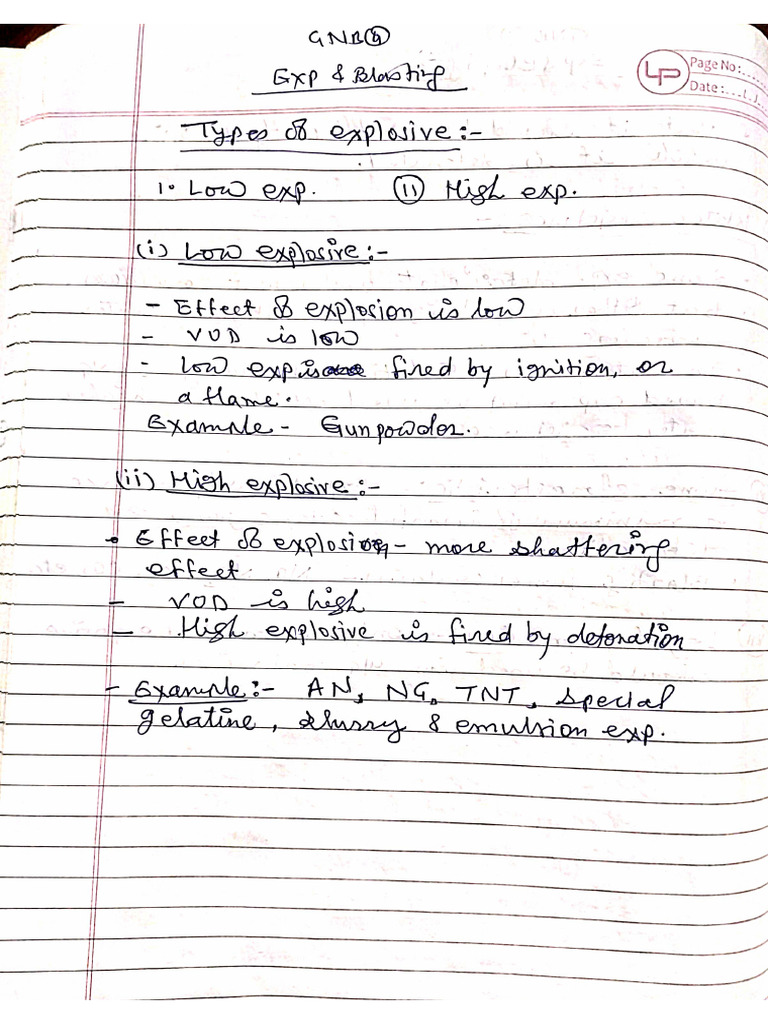 GNB④
Exp & Blasting
LP
Page No:.....
Date:...../..
Types of explosive:-
1. Low exp. (ii) High exp.
(i) Low explosive:-
- Effect of explosion is low
- VOD is low
- Low exp is fired by ignition, or
a flame.
Example - Gunpowder.
(ii) High explosive:-
• Effect of explosion - more shattering
effect.
- VOD is high
- High explosive is fired by detonation
- Example:- AN, NG, TNT, special
gelatine, slurry & emulsion exp.